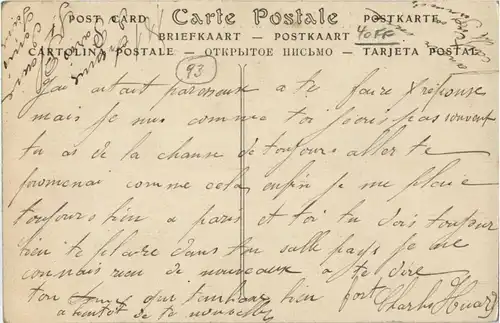 POST CARD Carte Postale POSTKARTE
BRIEFKAART — POSTKAART 40FF
CARTOLINA POSTALE — ОТКРЫТОЕ ПИСЬМО — TARJETA POSTAL
93
J'ai était paresseux a te faire réponse
mais je suis comme toi j'écris pas souvent
tu as de la chance de toujours aller te
promenai comme cela enfin je me plaie
toujours bien a paris et toi tu dois toujour
bien te plaire dans ton salle pays je me
connais rien de nouveaux a te dire
ton qui t'embrasse bien fort Charles Huard
a bientôt de te nouvelles